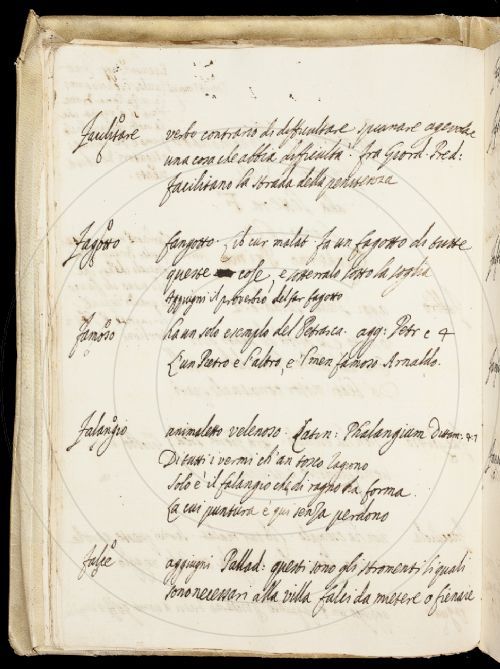 Facilitare verbo contrario di difficultare, spianare agevolare
una cosa che abbia difficultà. fra Giord. Pred:
facilitano la strada della penitenza
Fagotto fangotto. Lib cur malat fa un fagotto di tutte
queste cose, e sotterralo sotto la soglia
Aggiugni il proverbio del far fagotto
Famoso ha un solo esemplo del Petrarca. agg: Petr c 4
L'un Pietro e l'altro, e 'l men famoso Arnaldo.
Falangio animaletto velenoso. Latin: Phalangium Dittam: 4.
Di tutti i vermi ch'an tosco
Solo è il falangio che di ragno ha forma.
La cui puntura è qui senza perdono
Falce aggiugni Pallad: questi sono gli stromenti li quali
sono necessari alla villa falci da mietere o fienare.